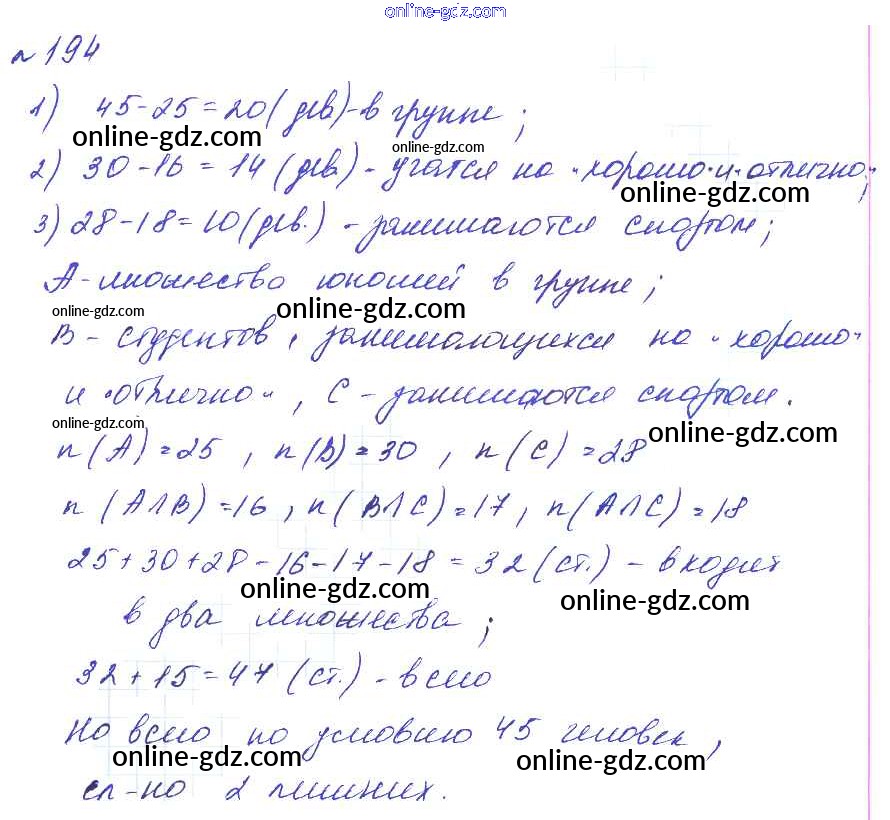 online-gdz.com
№ 194
1) 45-25=20(дев)-в группе;
online-gdz.com online-gdz.com
2) 30-16=14(дев.) - учатся на „хорошо“ и „отлично“;
online-gdz.com
3) 28-18=10(дев.) - занимаются спортом;
А-множество юношей в группе;
online-gdz.com online-gdz.com
В - студентов, занимающихся на „хорошо“
и „отлично“, С - занимаются спортом.
online-gdz.com online-gdz.com
n(A)=25, n(B)=30, n(C)=28
n(A∩B)=16, n(B∩C)=17, n(A∩C)=18
25+30+28-16-17-18=32(ст.) - входит
online-gdz.com online-gdz.com
в два множества;
32+15=47(ст.) - всего
Но всего по условию 45 человек,
online-gdz.com online-gdz.com
сл-но 2 лишних.